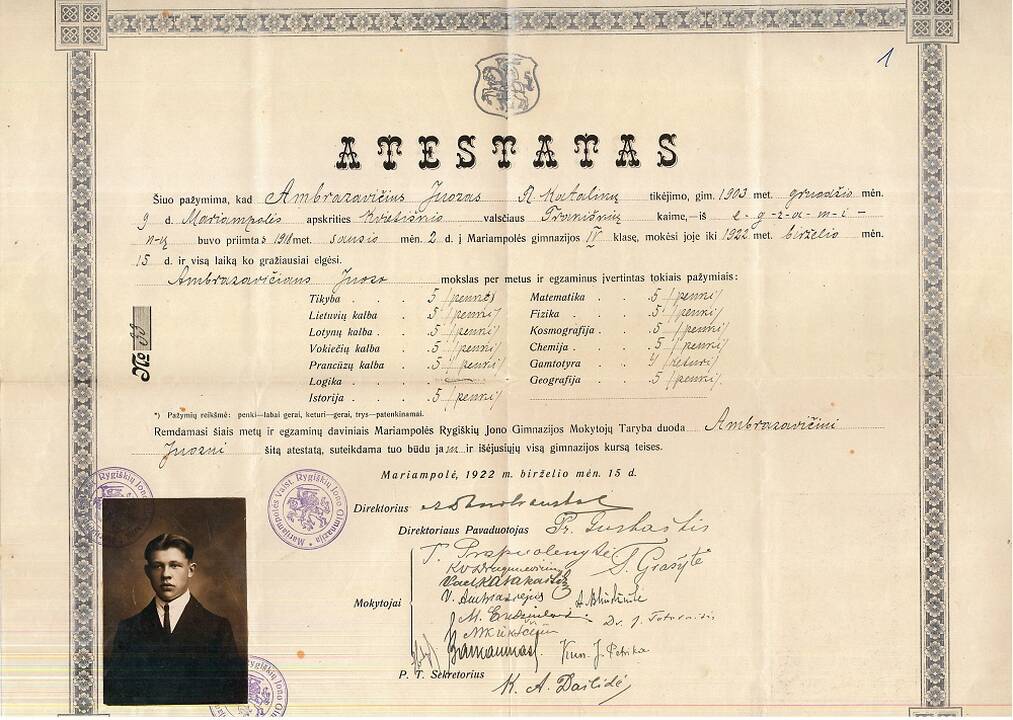 1
ATESTATAS
Šiuo pažymima, kad Ambrazavičius Juozas R. Katalikų tikėjimo, gim. 1903 met. gruodžio mėn.
9 d. Mariampolės apskrities Kvietiškio valsčiaus Traniškių kaime,—iš e-g-z-a-m-i-
n-ų buvo priimtas 1918 met. sausio mėn. 2 d. į Mariampolės gimnazijos IV klasę, mokėsi joje iki 1922 met. birželio mėn.
15 d. ir visą laiką ko gražiausiai elgėsi.
Ambrazavičiaus Juozo mokslas per metus ir egzaminus įvertintas tokiais pažymiais:
Tikyba . . . 5 /penki/ Matematika . . . 5 /penki/
Lietuvių kalba . . 5 /penki/ Fizika . . . 5 /penki/
Lotynų kalba . . . 5 /penki/ Kosmografija . . . 5 /penki/
Vokiečių kalba . . 5 /penki/ Chemija . . . 5 /penki/
Prancūzų kalba . . 5 /penki/ Gamtotyra . . . 4 /keturi/
Logika . . . Geografija . . . 5 /penki/.
Istorija . . . 5 /penki/
№ 33
*) Pažymių reikšmė: penki—labai gerai, keturi—gerai, trys—patenkinamai.
Remdamasi šiais metų ir egzaminų daviniais Mariampolės Rygiškių Jono Gimnazijos Mokytojų Taryba duoda Ambrazavičiui
Juozui šitą atestatą, suteikdama tuo būdu jam ir išėjusiųjų visą gimnazijos kursą teises.
Mariampolė, 1922 m. birželio mėn. 15 d.
Marijampolės Valst. Rygiškių Jono Gimnazija
Direktorius
Direktoriaus Pavaduotojas Pr.
T. Prapuolenytė
S. Grašytė
Mokytojai
V. Ambraziejus
Dr. J. Totoraitis
Kun. J. Petrika
P. T. Sekretorius K. A. Dailidė